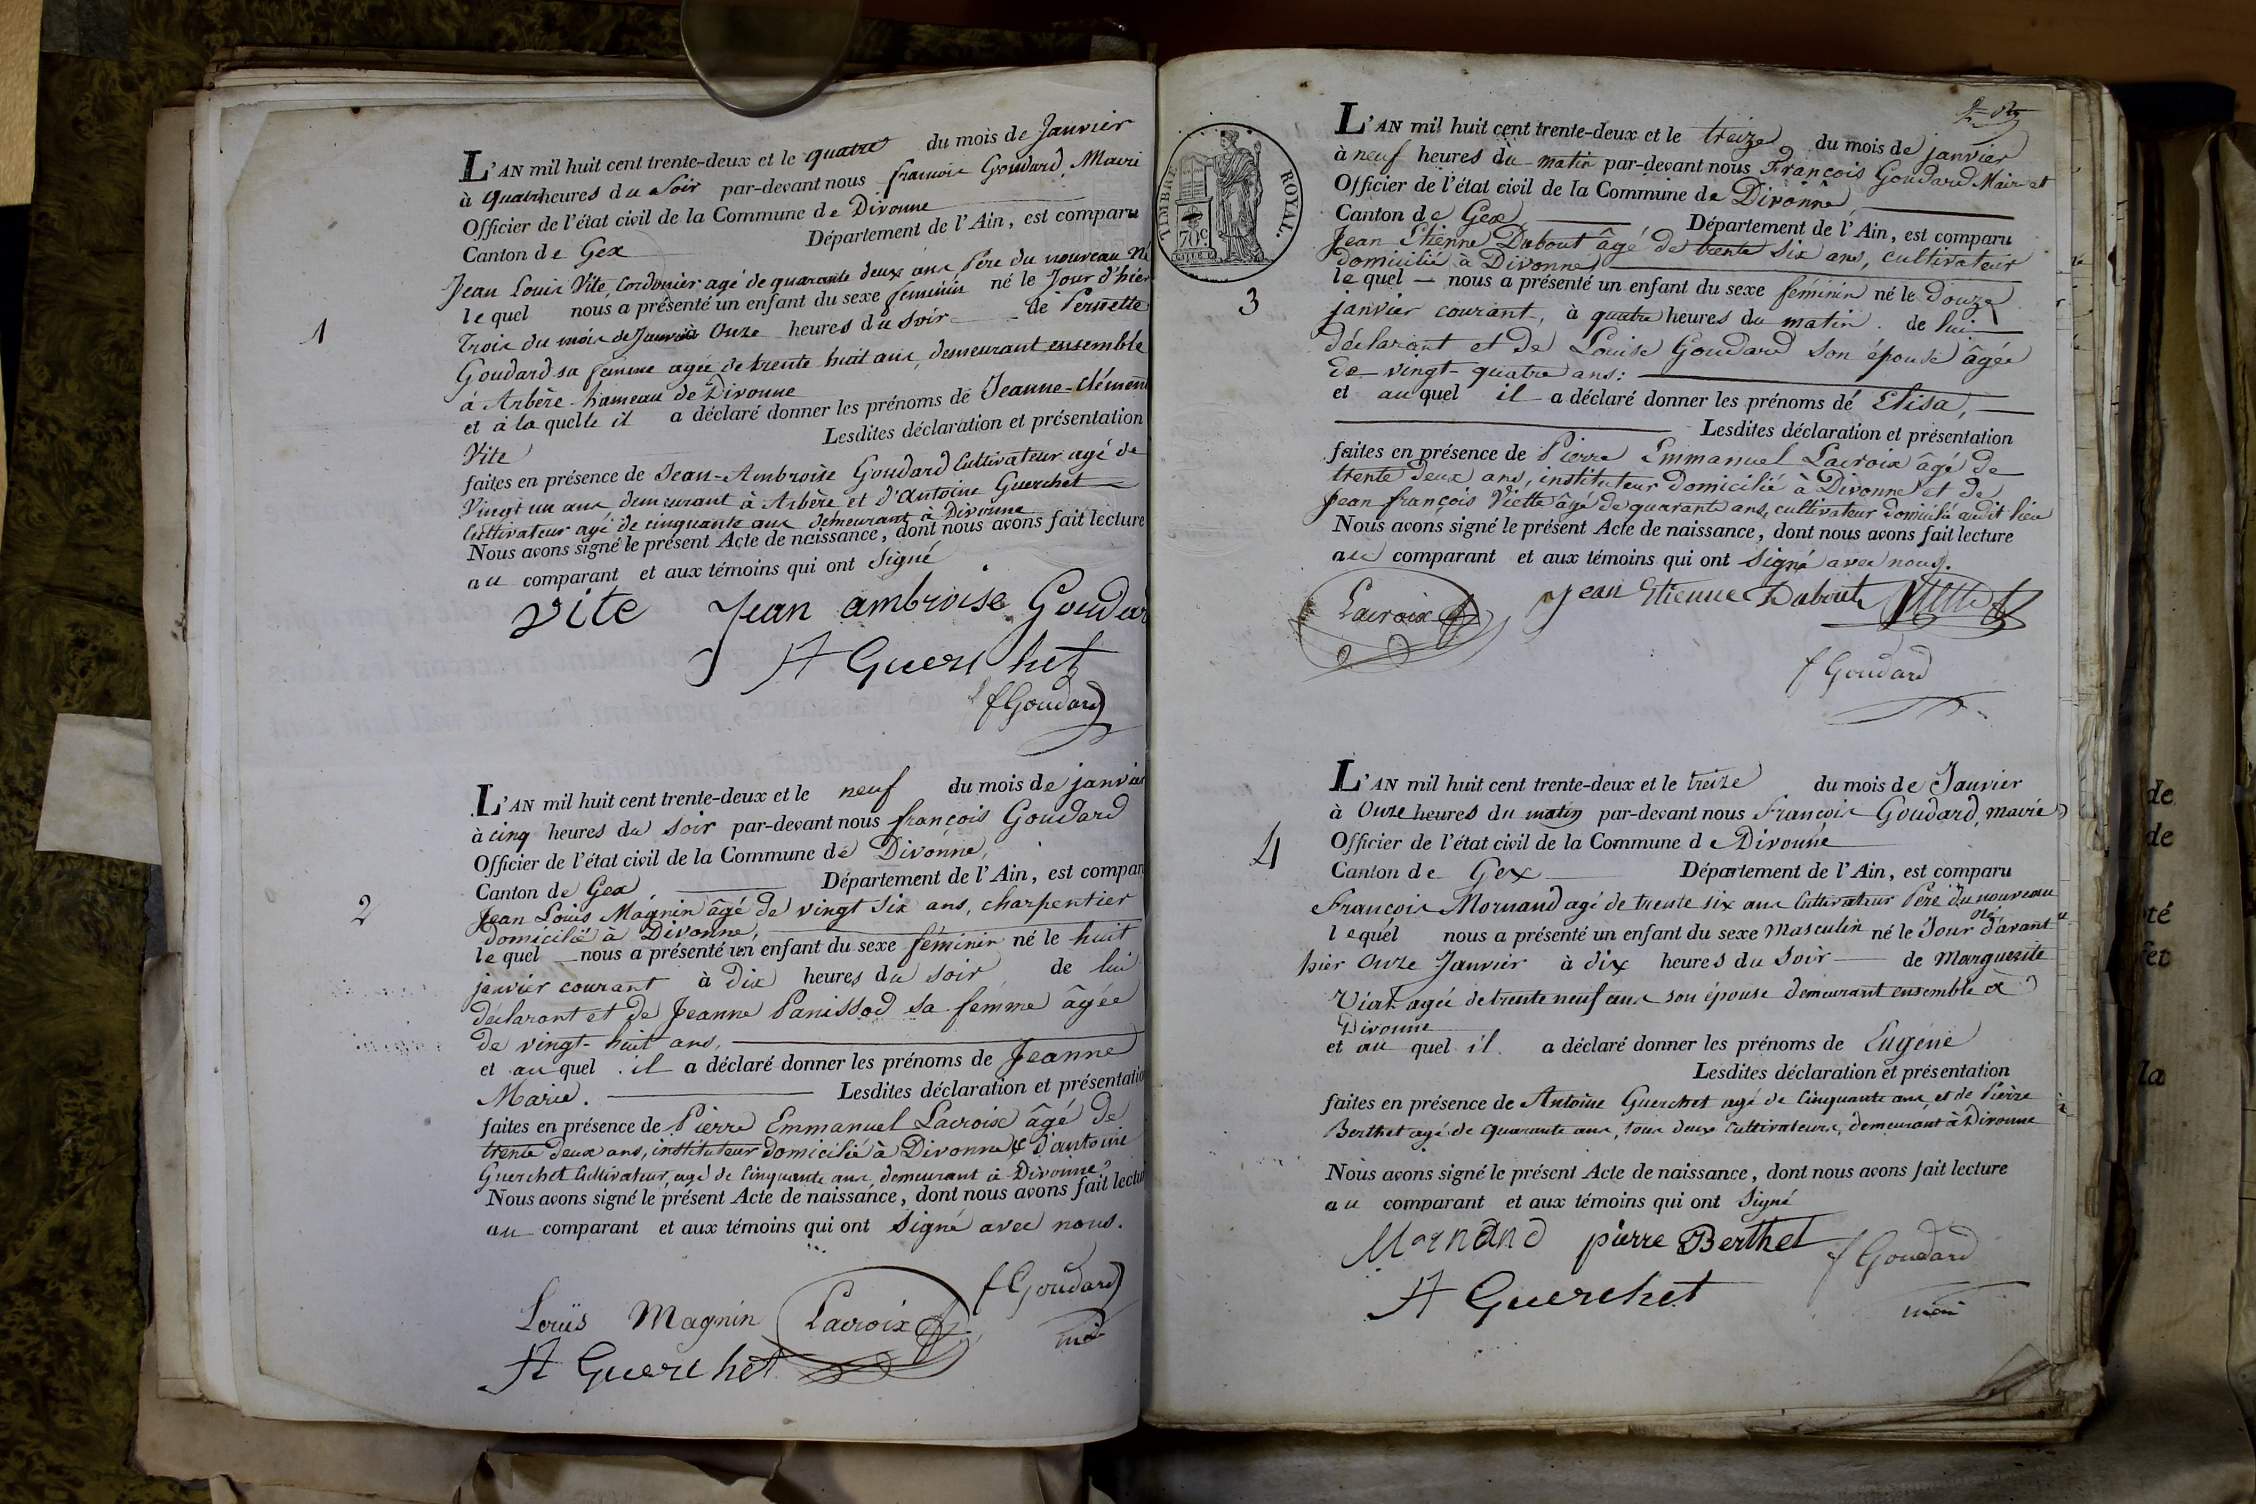 L'AN mil huit cent trente-deux et le quatre du mois de Janvier
à quatre heures du Soir par-devant nous francois Goudard, Maire
Officier de l'état civil de la Commune de Divonne
Canton de Gex Département de l'Ain, est comparu
Jean Louis Vite, Cordonier agé de quarante deux ans Père du nouveau Né
lequel nous a présenté un enfant du sexe feminin né le Jour d'hier
1
Trois du mois de Janvier à Onze heures du soir de Pernette
Goudard sa femme agée de trente huit ans, demeurant ensemble
à Arbère hameau de Divonne
et à laquelle il a déclaré donner les prénoms de Jeanne-clément
Vite Lesdites déclaration et présentation
faites en présence de Jean-Ambroise Goudard Cultivateur agé de
Vingt un ans, demeurant à Arbère et d'Antoine Guerchet
Cultivateur agé de cinquante ans demeurant à Divonne
Nous avons signé le présent Acte de naissance, dont nous avons fait lecture
au comparant et aux témoins qui ont Signé
Vite Jean ambroise Goudar
A Guerchet
f Goudard
L'AN mil huit cent trente-deux et le neuf du mois de janvier
à cinq heures du soir par-devant nous françois Goudard
Officier de l'état civil de la Commune de Divonne,
Canton de Gex. Département de l'Ain, est compar
2
Jean Louis Magnin âgé de vingt six ans, charpentier
domicilié à Divonne,
lequel nous a présenté un enfant du sexe féminin né le huit
janvier courant à dix heures du soir de lui
déclarant et de Jeanne Panissod sa femme âgée
de vingt-huit ans,
et auquel il a déclaré donner les prénoms de Jeanne
Marie. Lesdites déclaration et présentatio
faites en présence de Pierre Emmanuel Lacroix âgé de
trente deux ans, instituteur domicilié à Divonne & d'antoine
Guerchet Cultivateur, agé de Cinquante ans, demeurant à Divonne
Nous avons signé le présent Acte de naissance, dont nous avons fait lectu
au comparant et aux témoins qui ont signé avec nous.
f Goudard
Louis Magnin Lacroix
A Guerchet
L'AN mil huit cent trente-deux et le treize du mois de janvier
à neuf heures du matin par-devant nous François Goudard Maire et
Officier de l'état civil de la Commune de Divonne,
Canton de Gex Département de l'Ain, est comparu
TIMBRE ROYAL.
70c.
Jean Etienne Dubout âgé de trente six ans, cultivateur
domicilié à Divonne
lequel nous a présenté un enfant du sexe féminin né le douze
3
janvier courant, à quatre heures du matin. de lui
déclarant et de Louise Goudard son épouse âgée
de vingt-quatre ans:
et auquel il a déclaré donner les prénoms de Elisa,
Lesdites déclaration et présentation
faites en présence de Pierre Emmanuel Lacroix âgé de
trente deux ans, instituteur domicilié à Divonne et de
Jean françois Viette âgé de quarante ans, cultivateur domicilié audit lieu
Nous avons signé le présent Acte de naissance, dont nous avons fait lecture
au comparant et aux témoins qui ont signé avec nous.
Lacroix Jean Etienne Dubout Viette
f Goudard
L'AN mil huit cent trente-deux et le treize du mois de Janvier
à Onze heures du matin par-devant nous François Goudard, maire
4
Officier de l'état civil de la Commune de Divonne
Canton de Gex Département de l'Ain, est comparu
François Mornand agé de trente six ans Cultivateur Père du nouveau
né
lequel nous a présenté un enfant du sexe Masculin né le Jour d'avant
hier Onze Janvier à dix heures du Soir de Marguerite
Viat agée de trente neuf ans son épouse demeurant ensemble à
Divonne
et au quel il a déclaré donner les prénoms de Eugène
Lesdites déclaration et présentation
faites en présence de Antoine Guerchet agé de Cinquante ans, et de Pierre
Berthet agé de quarante ans, tous deux Cultivateurs, demeurant à Divonne
Nous avons signé le présent Acte de naissance, dont nous avons fait lecture
au comparant et aux témoins qui ont Signé
Mornand pierre Berthet f Goudard
A Guerchet
de
de
té
et
la